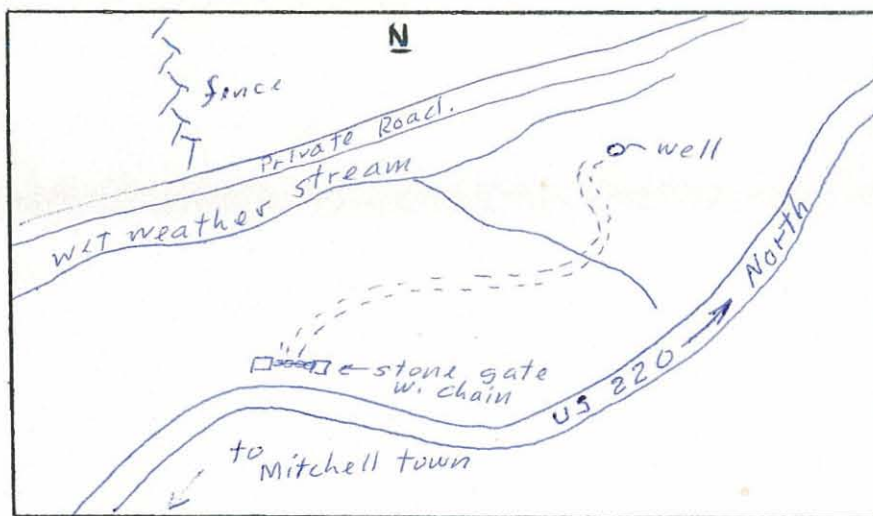 N
fence
Private Road.
well
wet weather stream
North
stone gate
w. chain
US 220
to
Mitchell town